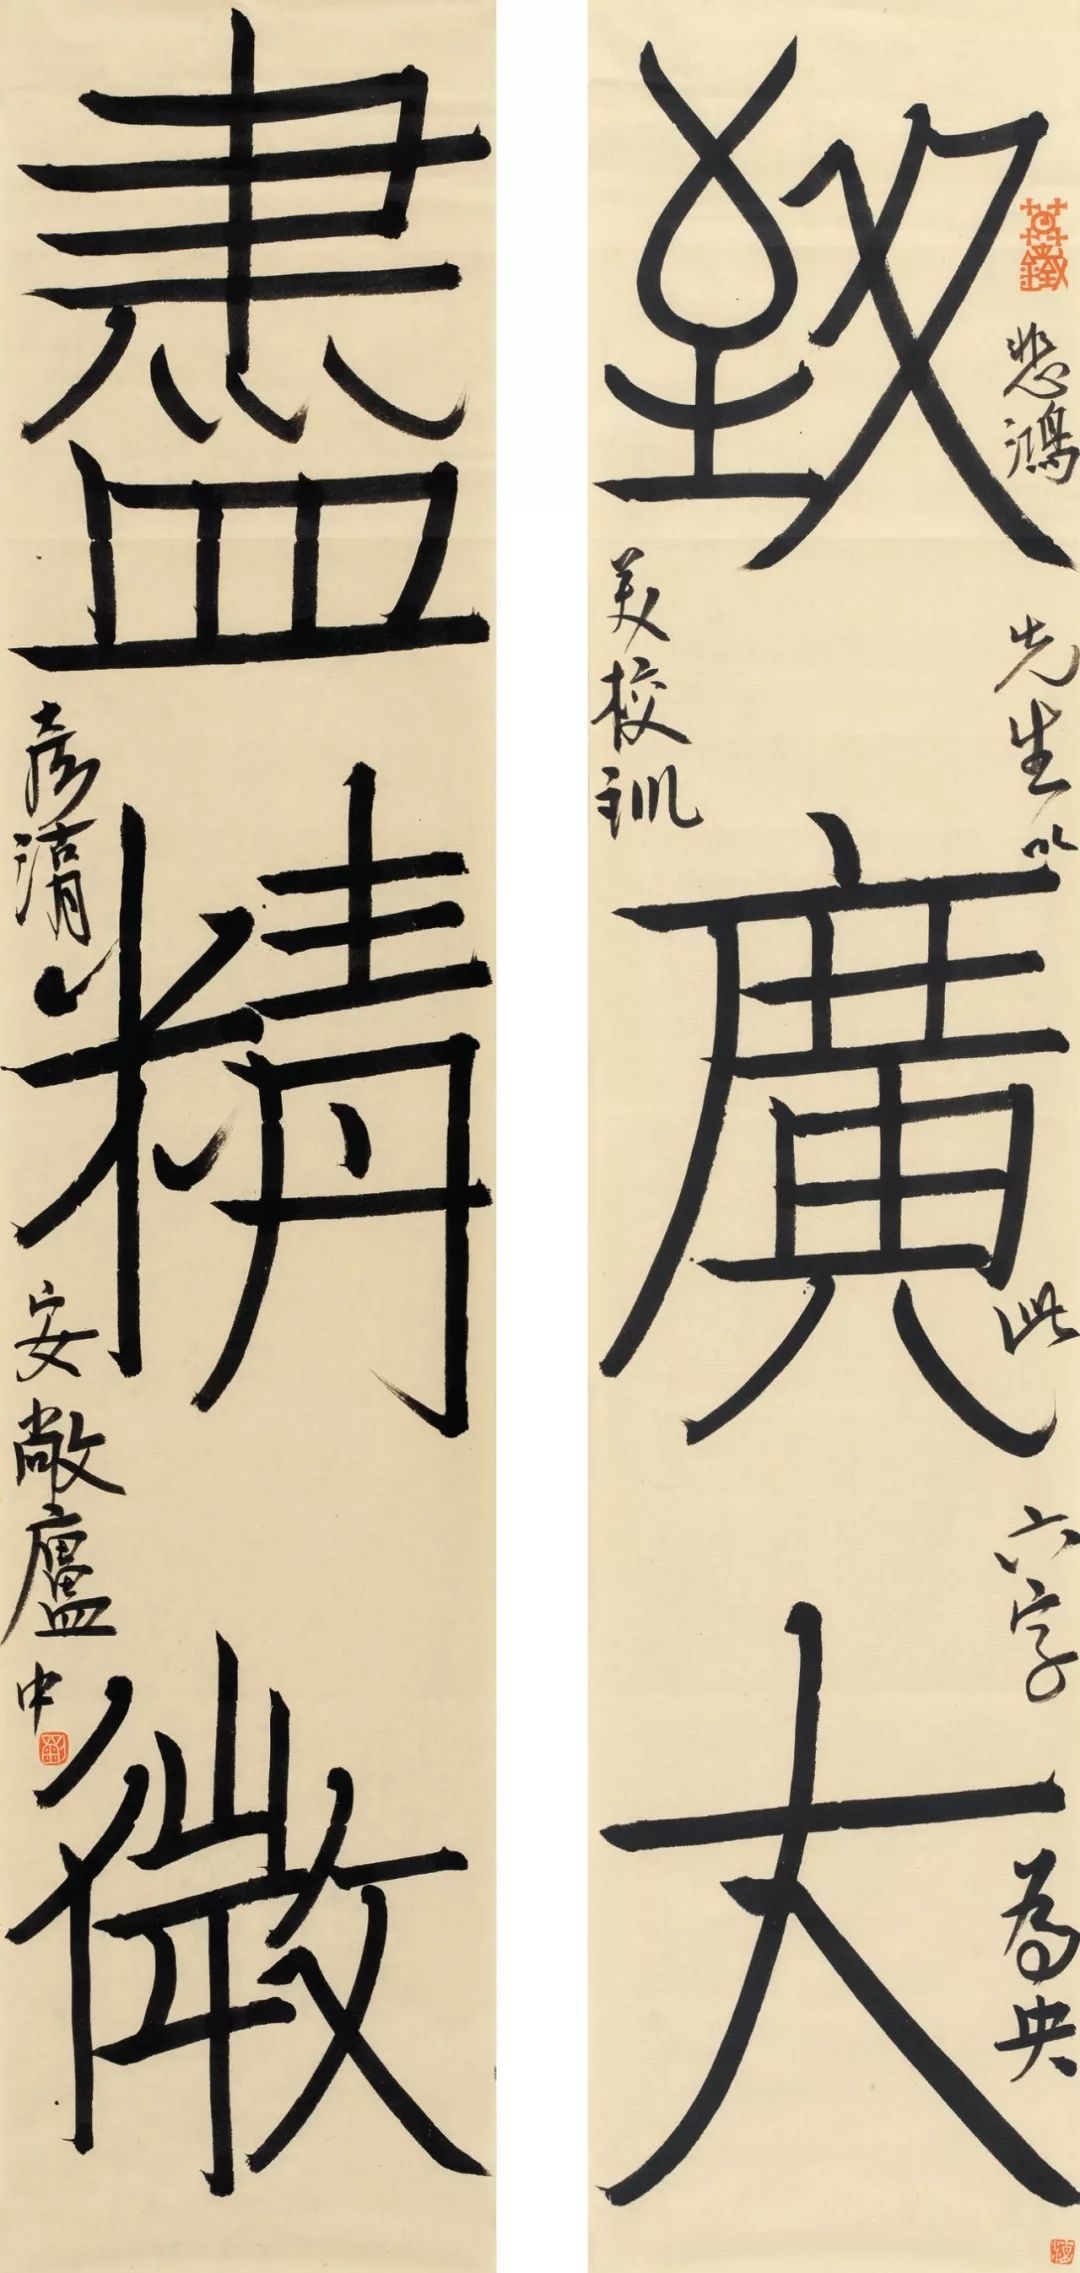 致廣大
悲鴻先生以此六字為央
美校訓
盡精微
彥湖安敞廬中